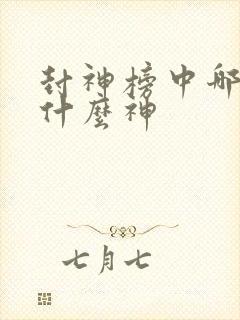 封神榜中哪
什麼神
七月七